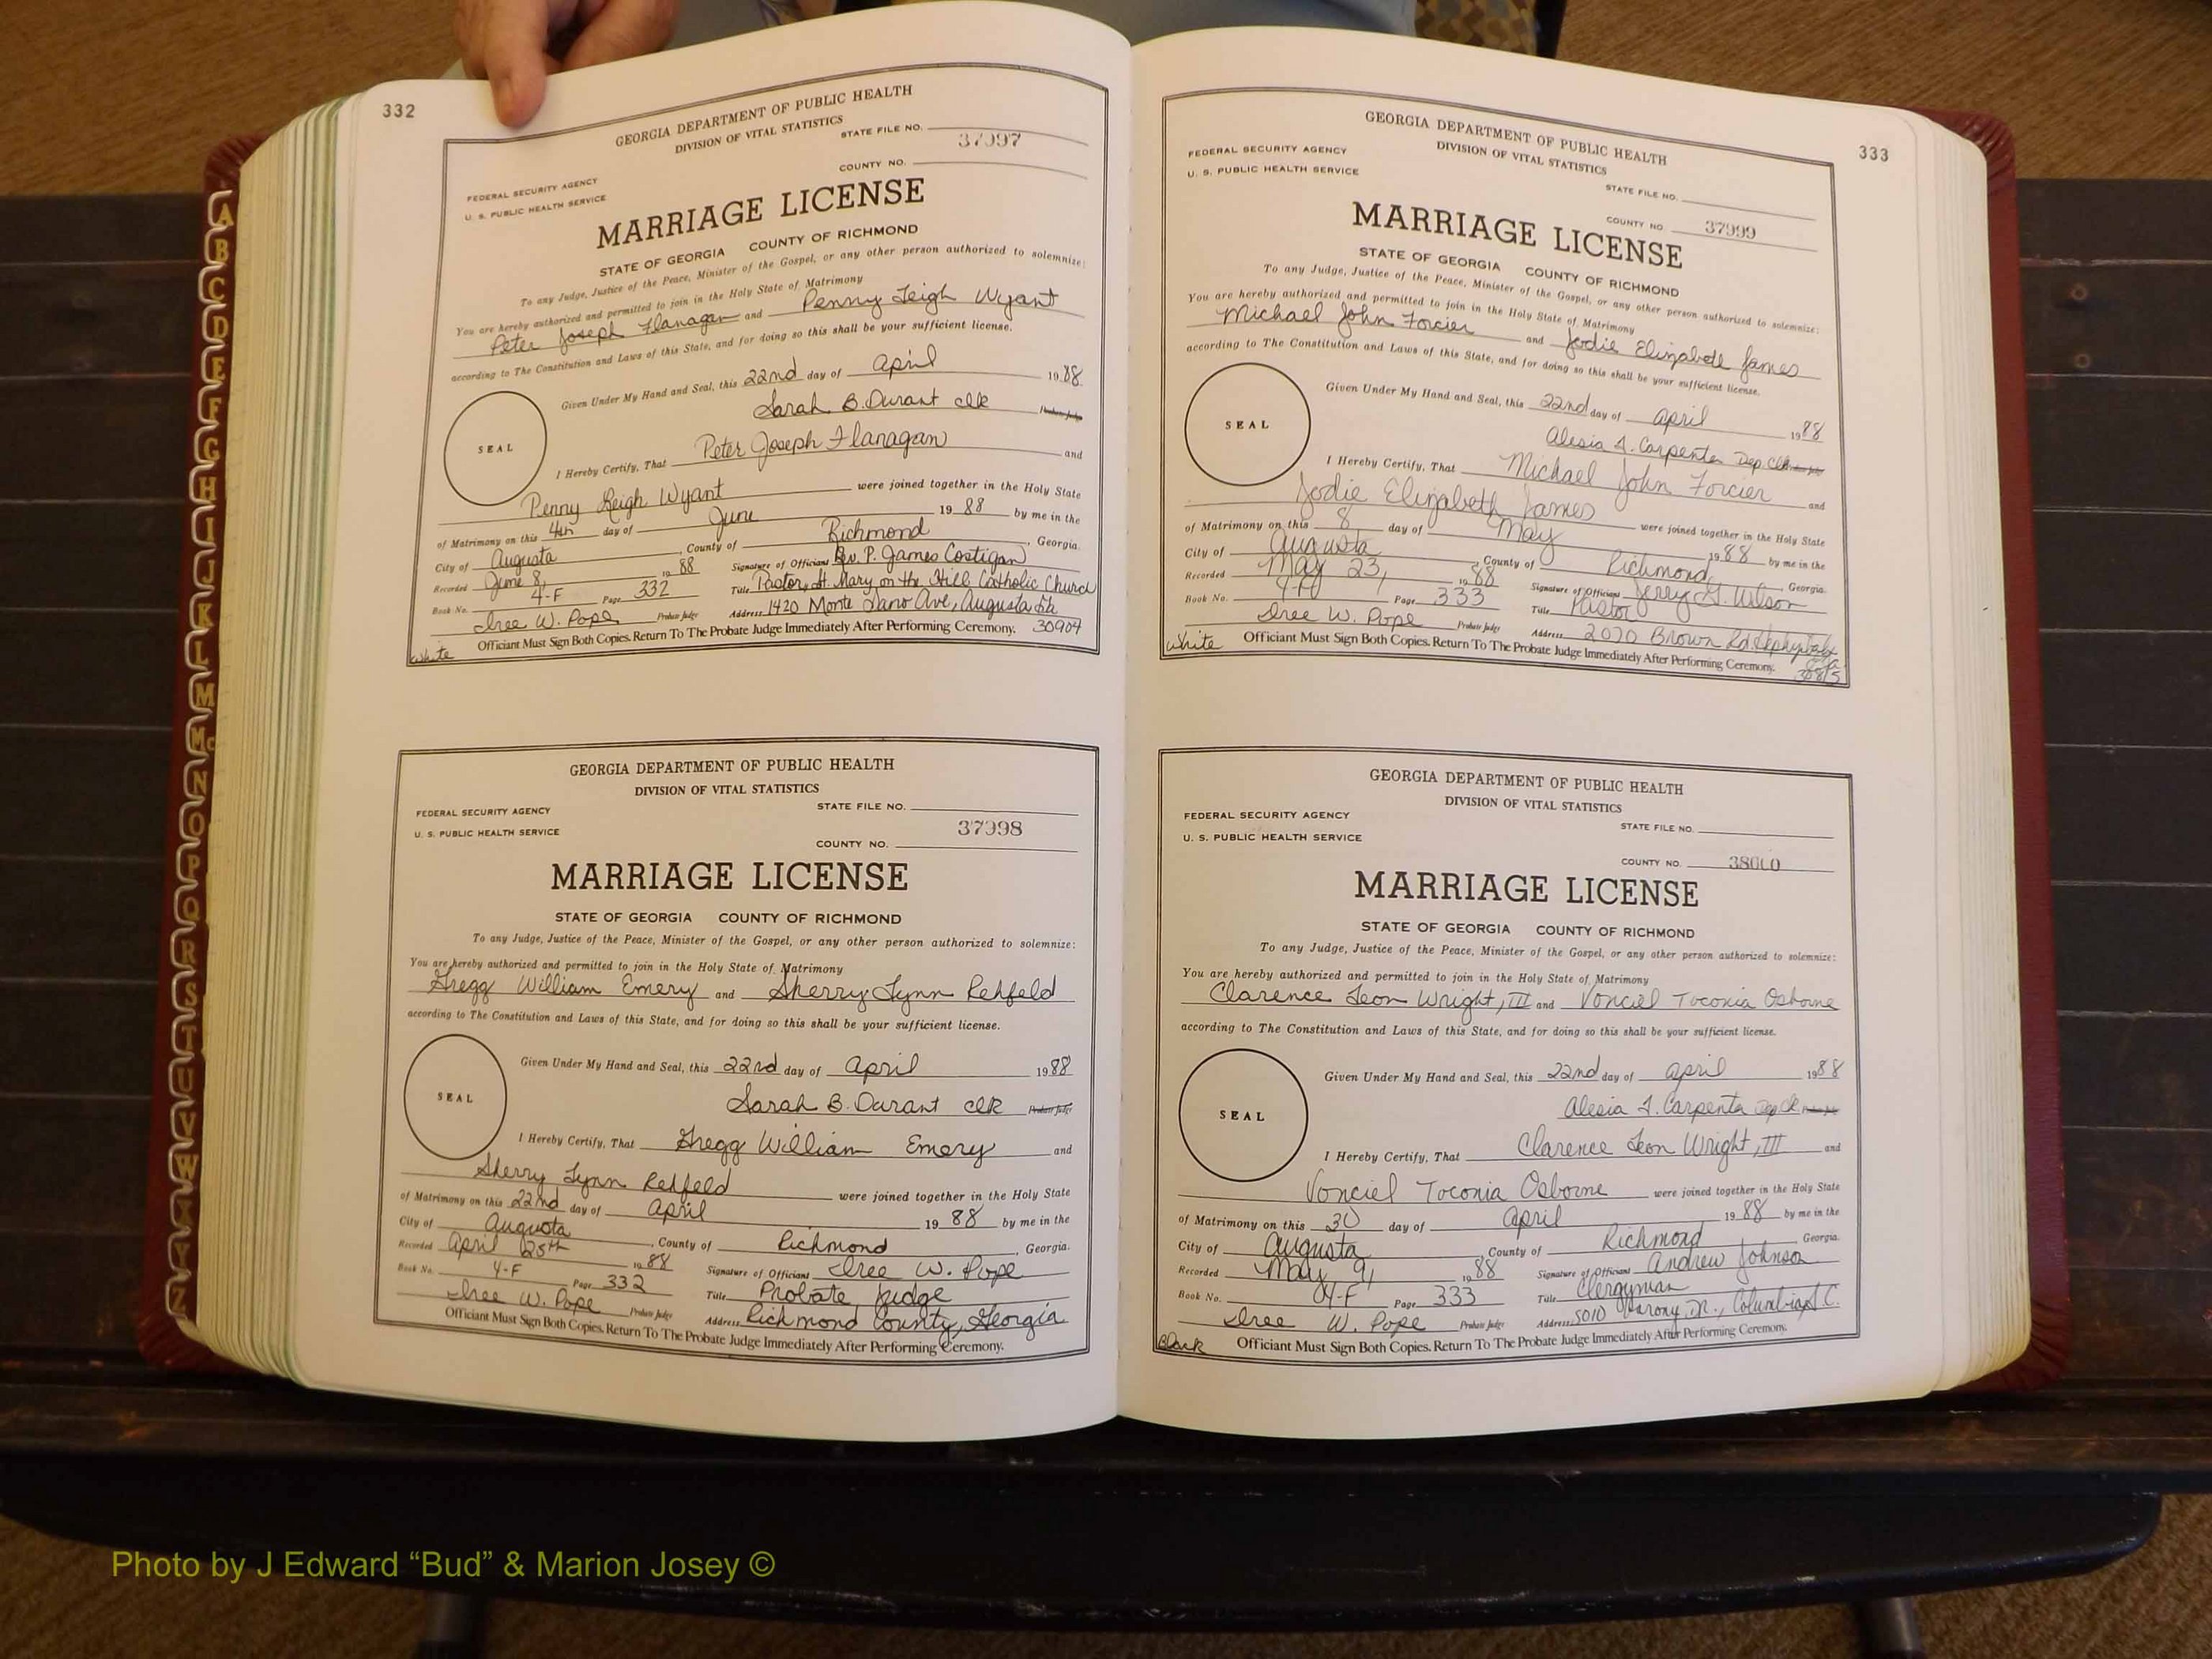 332
GEORGIA DEPARTMENT OF PUBLIC HEALTH
DIVISION OF VITAL STATISTICS
STATE FILE NO. 37997
COUNTY NO.
FEDERAL SECURITY AGENCY
U. S. PUBLIC HEALTH SERVICE
MARRIAGE LICENSE
STATE OF GEORGIA COUNTY OF RICHMOND
To any Judge, Justice of the Peace, Minister of the Gospel, or any other person authorized to solemnize:
You are hereby authorized and permitted to join in the Holy State of Matrimony
Peter Joseph Flanagan and Penny Leigh Wyant
according to The Constitution and Laws of this State, and for doing so this shall be your sufficient license.
Given Under My Hand and Seal, this 22nd day of April 1988
Sarah B. Durant clk Probate Judge
SEAL
I Hereby Certify, That Peter Joseph Flanagan and
Penny Leigh Wyant were joined together in the Holy State
of Matrimony on this 4th day of June 19 88 by me in the
City of Augusta, County of Richmond, Georgia.
Recorded June 8, 19 88 Signature of Officiant Rev. P. James Costigan
Book No. 4-F Page 332 Title Pastor, St. Mary on the Hill Catholic Church
Iree W. Pope Probate Judge Address 1420 Monte Sano Ave, Augusta Ga 30904
White Officiant Must Sign Both Copies. Return To The Probate Judge Immediately After Performing Ceremony.
GEORGIA DEPARTMENT OF PUBLIC HEALTH
DIVISION OF VITAL STATISTICS
FEDERAL SECURITY AGENCY
U. S. PUBLIC HEALTH SERVICE
STATE FILE NO.
37998
COUNTY NO.
MARRIAGE LICENSE
STATE OF GEORGIA COUNTY OF RICHMOND
To any Judge, Justice of the Peace, Minister of the Gospel, or any other person authorized to solemnize:
You are hereby authorized and permitted to join in the Holy State of Matrimony
Gregg William Emery and Sherry Lynn Rehfeld
according to The Constitution and Laws of this State, and for doing so this shall be your sufficient license.
Given Under My Hand and Seal, this 22nd day of April 1988
Sarah B. Durant clk Probate Judge
SEAL
I Hereby Certify, That Gregg William Emery and
Sherry Lynn Rehfeld were joined together in the Holy State
of Matrimony on this 22nd day of April 19 88 by me in the
City of Augusta, County of Richmond, Georgia.
Recorded April 25th 19 88 Signature of Officiant Iree W. Pope
Book No. 4-F Page 332 Title Probate Judge
Iree W. Pope Probate Judge Address Richmond County, Georgia
Officiant Must Sign Both Copies. Return To The Probate Judge Immediately After Performing Ceremony.
333
GEORGIA DEPARTMENT OF PUBLIC HEALTH
DIVISION OF VITAL STATISTICS
FEDERAL SECURITY AGENCY
U. S. PUBLIC HEALTH SERVICE
STATE FILE NO.
COUNTY NO 37999
MARRIAGE LICENSE
STATE OF GEORGIA COUNTY OF RICHMOND
To any Judge, Justice of the Peace, Minister of the Gospel, or any other person authorized to solemnize:
You are hereby authorized and permitted to join in the Holy State of Matrimony
Michael John Forcier and Jodie Elizabeth James
according to The Constitution and Laws of this State, and for doing so this shall be your sufficient license.
Given Under My Hand and Seal, this 22nd day of April 1988
Alesia J. Carpenter Dep. Clk
SEAL
I Hereby Certify, That Michael John Forcier and
Jodie Elizabeth James were joined together in the Holy State
of Matrimony on this 8 day of May 19 88 by me in the
City of Augusta, County of Richmond, Georgia.
Recorded May 23, 19 88 Signature of Officiant Jerry G. Wilson
Book No. 4-F Page 333 Title Pastor
Iree W. Pope Probate Judge Address 2070 Brown Rd. Hephzibah Ga. 30815
White Officiant Must Sign Both Copies. Return To The Probate Judge Immediately After Performing Ceremony.
GEORGIA DEPARTMENT OF PUBLIC HEALTH
DIVISION OF VITAL STATISTICS
FEDERAL SECURITY AGENCY
U. S. PUBLIC HEALTH SERVICE
STATE FILE NO.
COUNTY NO. 38000
MARRIAGE LICENSE
STATE OF GEORGIA COUNTY OF RICHMOND
To any Judge, Justice of the Peace, Minister of the Gospel, or any other person authorized to solemnize:
You are hereby authorized and permitted to join in the Holy State of Matrimony
Clarence Leon Wright, III and Vonciel Toconia Osborne
according to The Constitution and Laws of this State, and for doing so this shall be your sufficient license.
Given Under My Hand and Seal, this 22nd day of April 1988
Alesia J. Carpenter Dep Clk
SEAL
I Hereby Certify, That Clarence Leon Wright, III and
Vonciel Toconia Osborne were joined together in the Holy State
of Matrimony on this 30 day of April 19 88 by me in the
City of Augusta, County of Richmond, Georgia.
Recorded May 9, 19 88 Signature of Officiant Andrew Johnson
Book No. 4-F Page 333 Title Clergyman
Iree W. Pope Probate Judge Address 5010 Dr., Columbia, S.C.
Black Officiant Must Sign Both Copies. Return To The Probate Judge Immediately After Performing Ceremony.
A
B
C
D
E
F
G
H
I
J
K
L
M
Mc
N
O
P
Q
R
S
T
U
V
W
X
Y
Z
Photo by J Edward “Bud” & Marion Josey ©